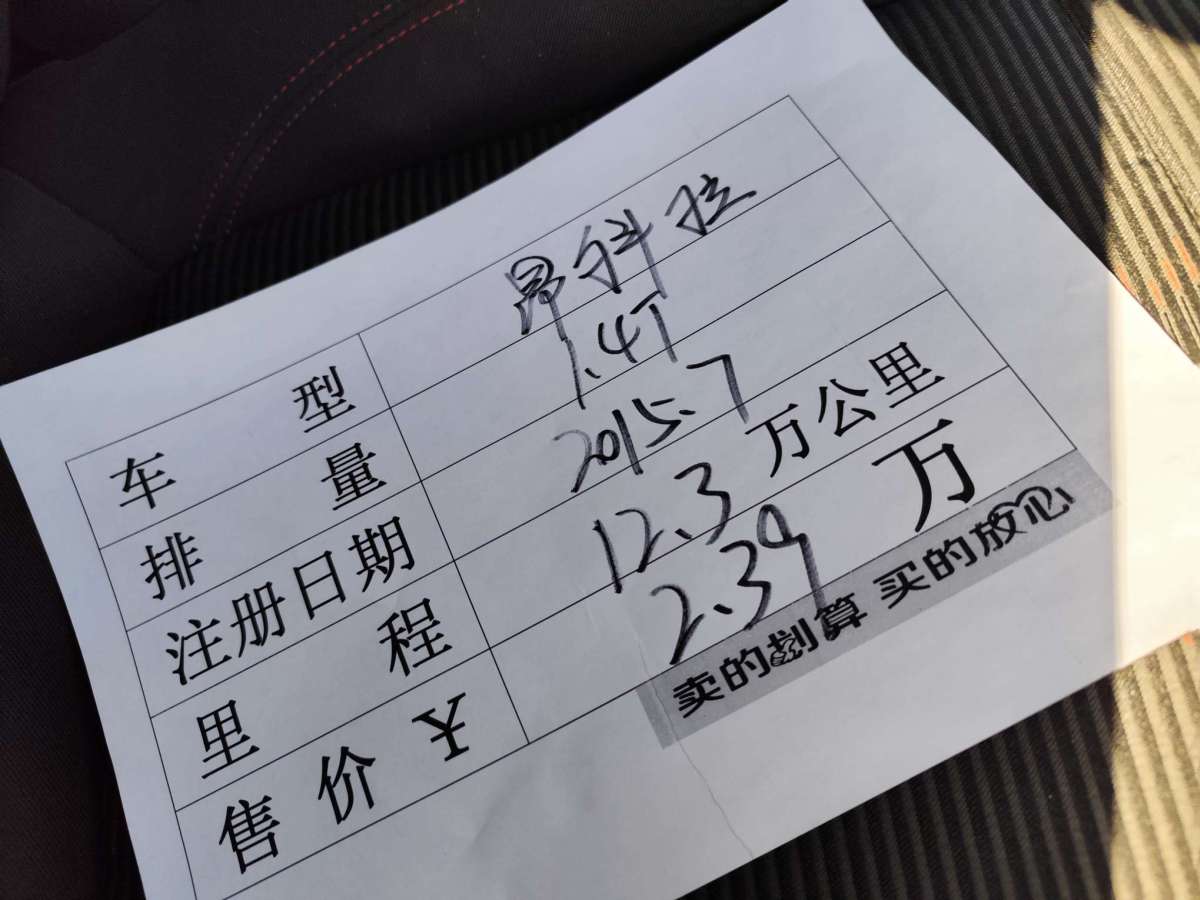 车型 昂科拉
排量 1.4T
注册日期 2015.7
里程 12.3 万公里
售价 ¥ 2.39 万
卖的划算 买的放心